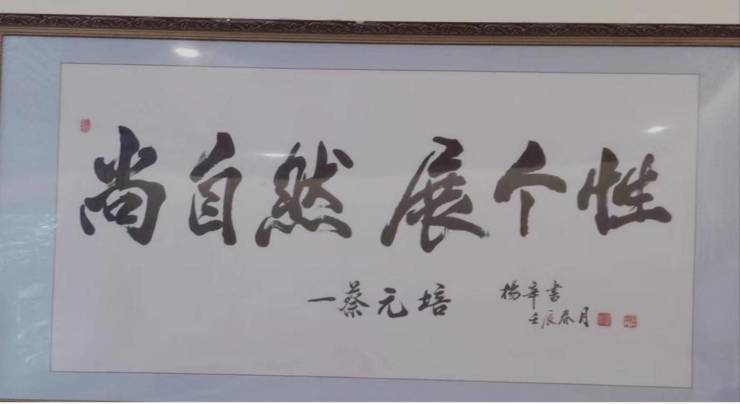 尚自然 展个性
一蔡元培
杨辛书
壬辰春月